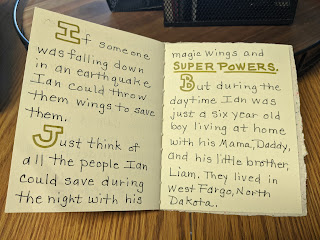 If someone
was falling down
in an earthquake
Ian could throw
them wings to save
them.
Just think of
all the people Ian
could save during
the night with his
magic wings and
SUPER POWERS.
But during the
daytime Ian was
just a six year old
boy living at home
with his Mama, Daddy,
and his little brother,
Liam. They lived in
West Fargo, North
Dakota.